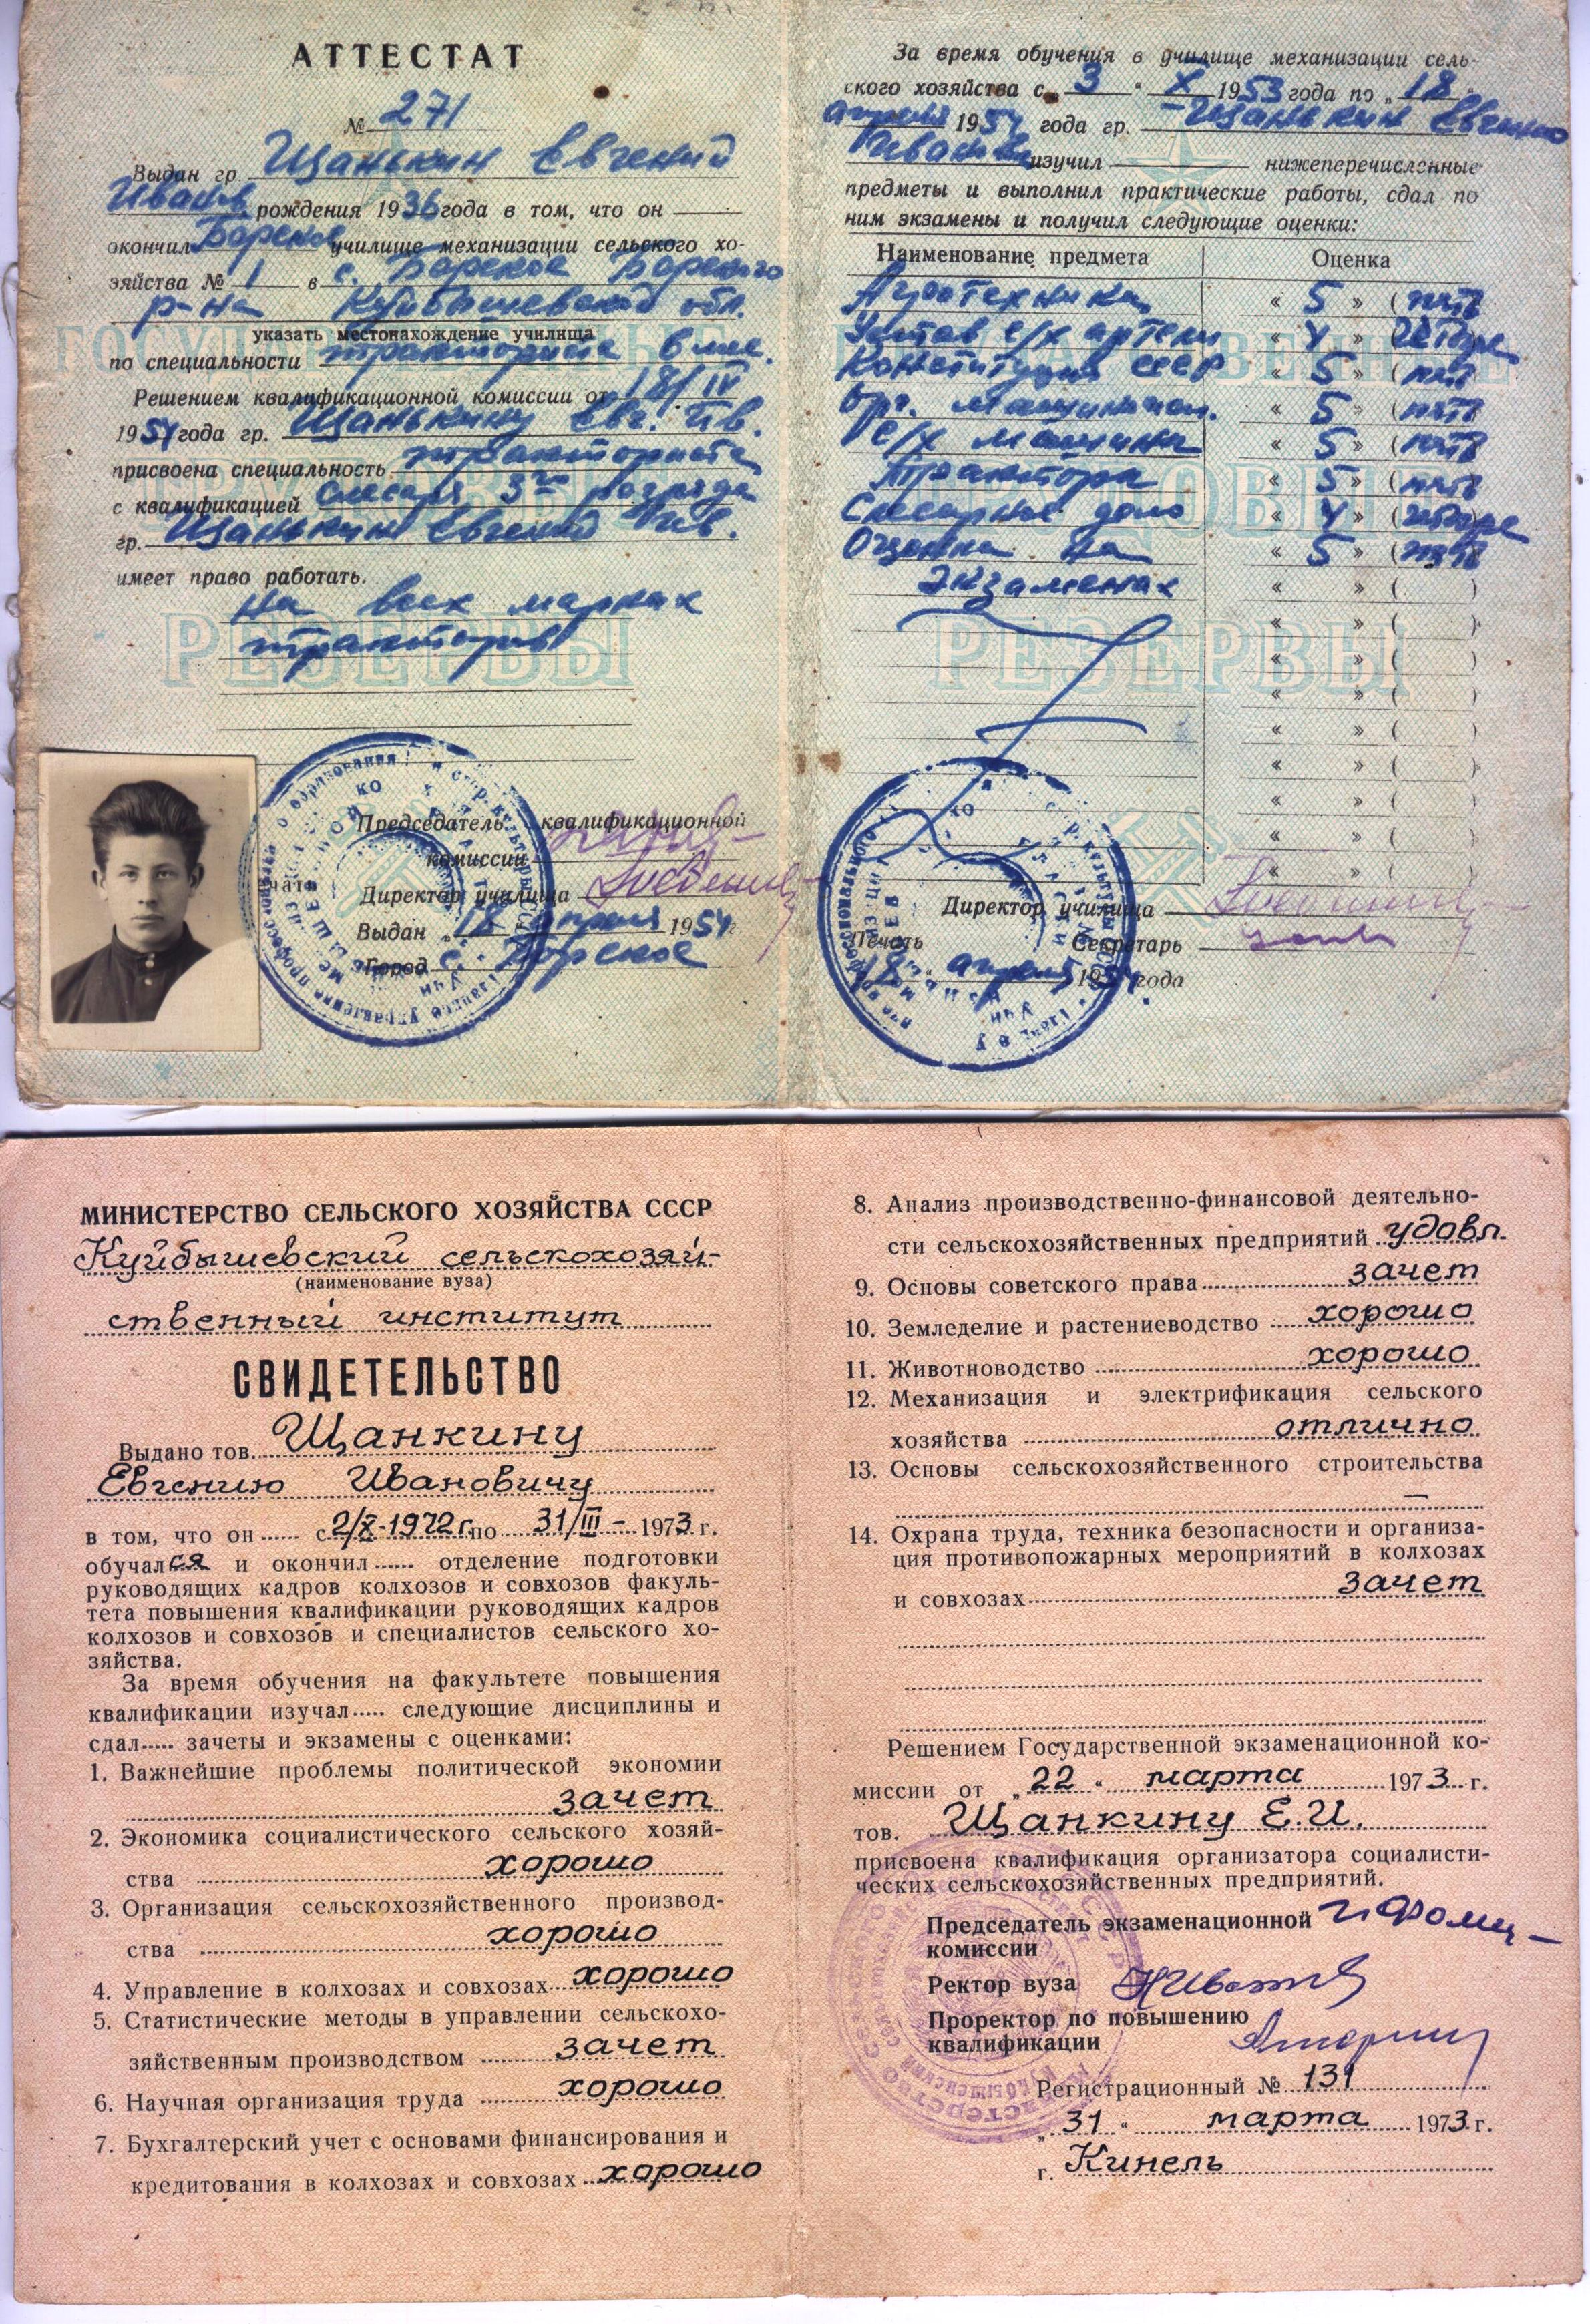 АТТЕСТАТ
№ 271
Выдан гр. Щанькин Евгений
Иванов рождения 1936 года в том, что он
окончил Борское училище механизации сельского хо-
зяйства № 1 в с. Борское Борского
р-на Куйбышевской обл.
указать местонахождение училища
по специальности тракториста
Решением квалификационной комиссии от 18/IV
1954 года гр. Щанькину Евг. Ив.
присвоена специальность тракториста
с квалификацией слесаря 3го разряда
гр. Щанькин Евгений Ив.
имеет право работать.
на всех марках
тракторов
Председатель квалификационной
комиссии
Директор училища
Выдан „18 апреля 1954 г
Город с. Борское
За время обучения в училище механизации сель-
ского хозяйства с „3“ X 1953 года по „18“
апреля 1954 года гр. Щанькин Евгений
Иванов изучил нижеперечисленные
предметы и выполнил практические работы, сдал по
ним экзамены и получил следующие оценки:
Наименование предмета Оценка
Агротехника « 5 » (пять
Устав с/х артели « 4 » (четыре
Конституция СССР « 5 » (пять
« 5 » (пять
с/х машины « 5 » (пять
Трактора « 5 » (пять
Слесарное дело « 4 » (четыре
Оценка на « 5 » (пять
экзаменах « » ( )
« » ( )
« » ( )
« » ( )
« » ( )
« » ( )
« » ( )
« » ( )
« » ( )
Директор училища
Печать Секретарь
18 апреля 1954 года
МИНИСТЕРСТВО СЕЛЬСКОГО ХОЗЯЙСТВА СССР
Куйбышевский сельскохозяй-
(наименование вуза)
ственный институт
СВИДЕТЕЛЬСТВО
Выдано тов. Щанкину
Евгению Ивановичу
в том, что он с 2/X-1972 г. по 31/III - 1973 г.
обучался и окончил отделение подготовки
руководящих кадров колхозов и совхозов факуль-
тета повышения квалификации руководящих кадров
колхозов и совхозов и специалистов сельского хо-
зяйства.
За время обучения на факультете повышения
квалификации изучал следующие дисциплины и
сдал зачеты и экзамены с оценками:
1. Важнейшие проблемы политической экономии
зачет
2. Экономика социалистического сельского хозяй-
ства хорошо
3. Организация сельскохозяйственного производ-
ства хорошо
4. Управление в колхозах и совхозах хорошо
5. Статистические методы в управлении сельскохо-
зяйственным производством зачет
6. Научная организация труда хорошо
7. Бухгалтерский учет с основами финансирования и
кредитования в колхозах и совхозах хорошо
8. Анализ производственно-финансовой деятельно-
сти сельскохозяйственных предприятий удовл.
9. Основы советского права зачет
10. Земледелие и растениеводство хорошо
11. Животноводство хорошо
12. Механизация и электрификация сельского
хозяйства отлично
13. Основы сельскохозяйственного строительства
—
14. Охрана труда, техника безопасности и организа-
ция противопожарных мероприятий в колхозах
и совхозах зачет
Решением Государственной экзаменационной ко-
миссии от „22“ марта 1973 г.
тов. Щанкину Е.И.
присвоена квалификация организатора социалисти-
ческих сельскохозяйственных предприятий.
Председатель экзаменационной
комиссии
Ректор вуза
Проректор по повышению
квалификации
Регистрационный № 131
„31“ марта 1973 г.
г. Кинель